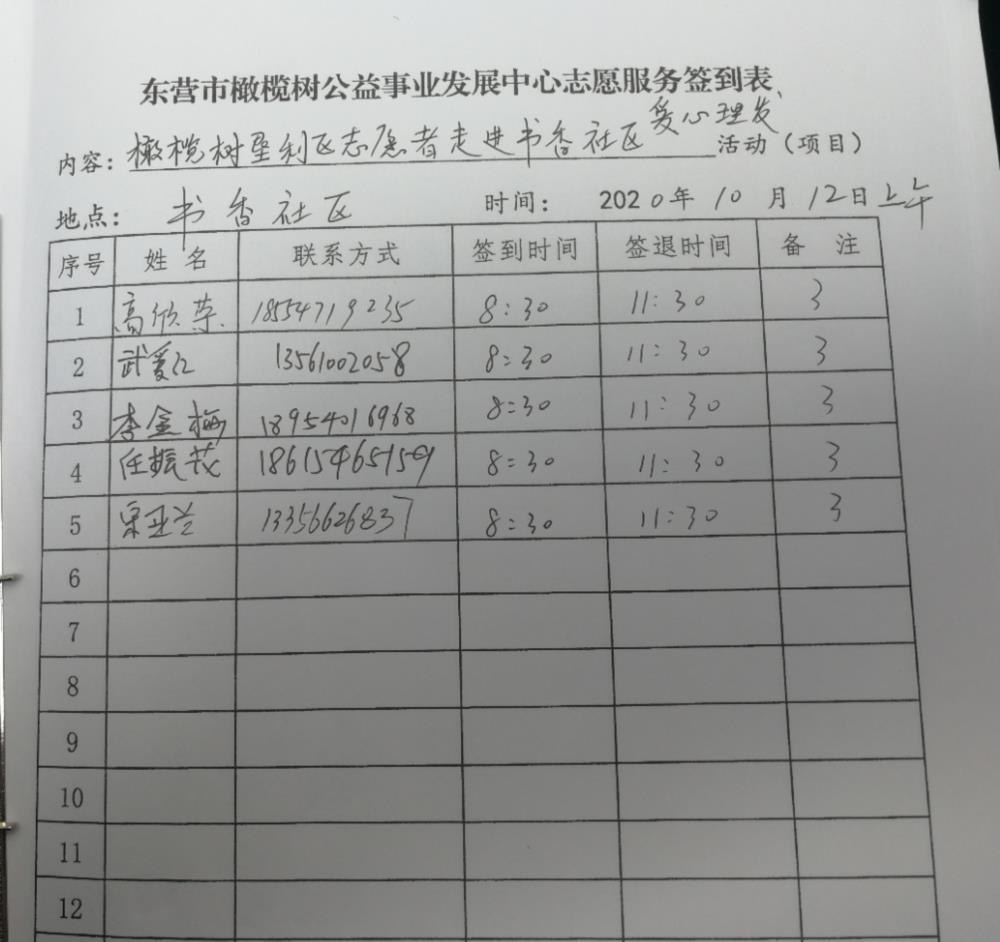 东营市橄榄树公益事业发展中心志愿服务签到表
内容：橄榄树垦利区志愿者走进书香社区爱心理发活动（项目）
地点：书香社区 时间：2020年10月12日上午
序号 姓名 联系方式 签到时间 签退时间 备注
1 高欣荣 18554719235 8:30 11:30 3
2 武爱江 13561002058 8:30 11:30 3
3 李金梅 18954016968 8:30 11:30 3
4 任振茂 18615465159 8:30 11:30 3
5 宋亚兰 13356626837 8:30 11:30 3
6
7
8
9
10
11
12